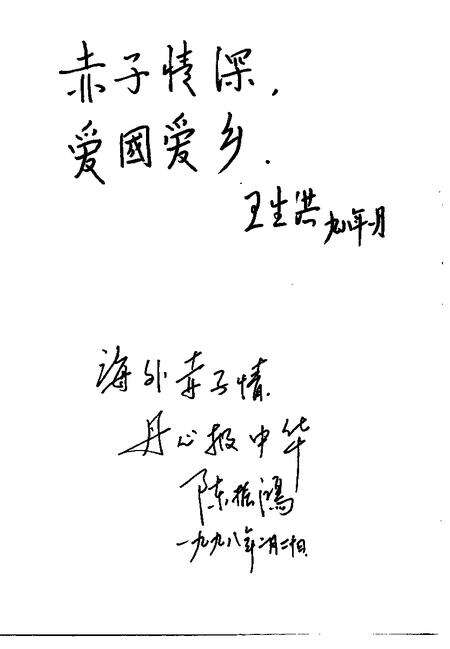 赤子情深,
爱國爱乡.
王生洪 九八年一月
海外赤子情
丹心报中华
陈振鸿
一九九八年二月二十日